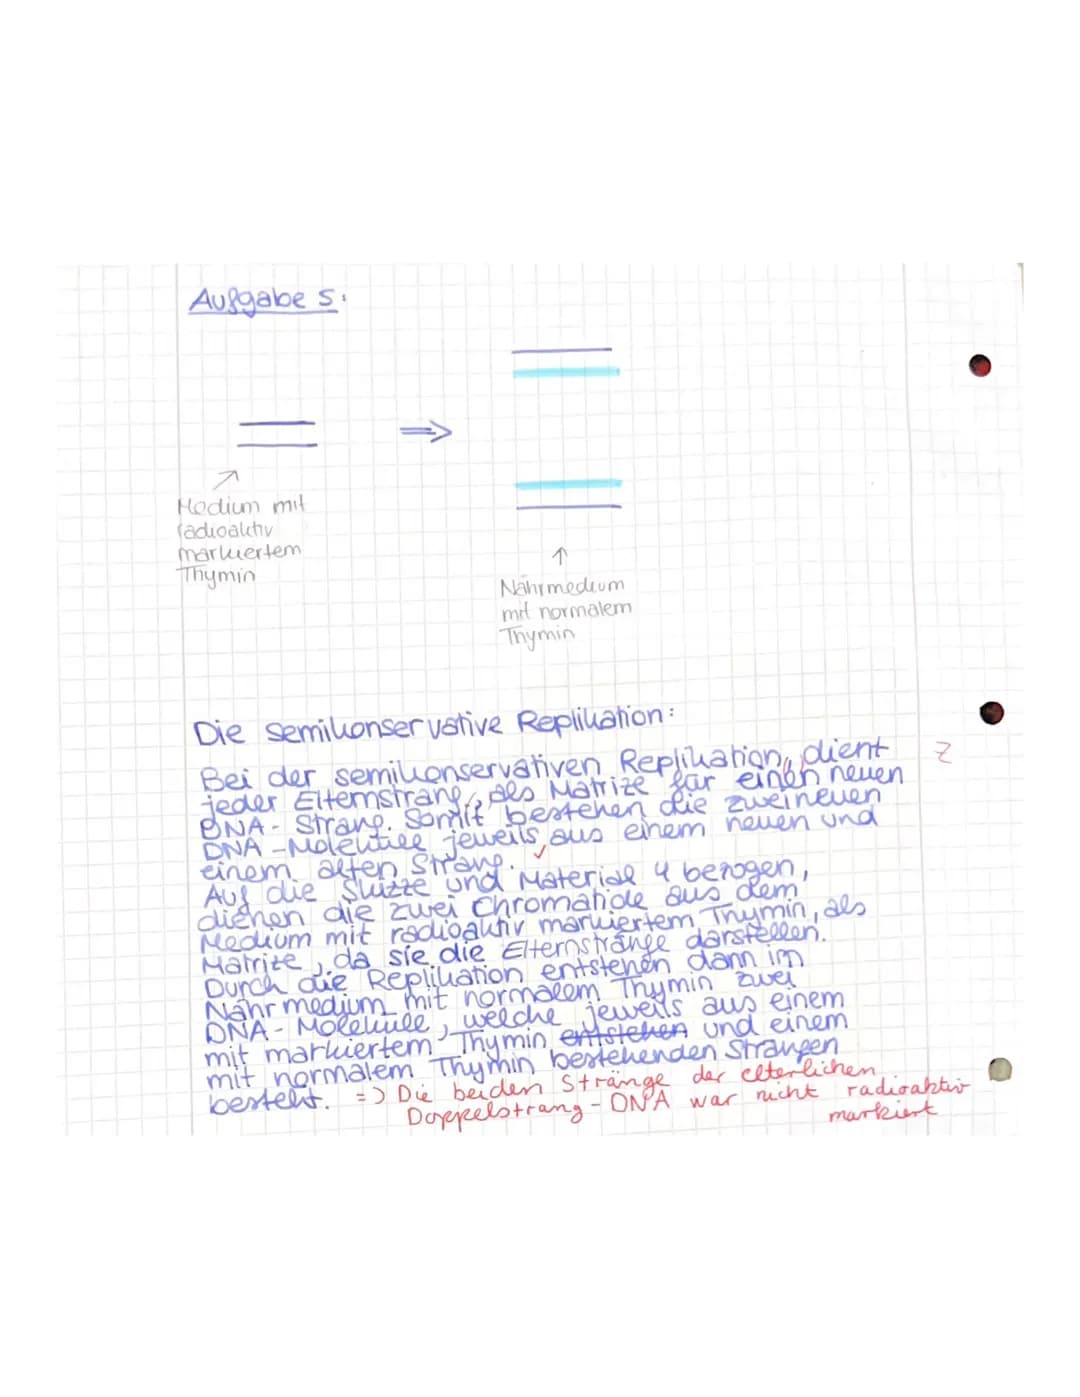 Aufgabe 5:
Medium mit
radioaktiv
markiertem
Thymin
Nährmedium
mit normalem
Thymin
Die semikonservative Replikation:
Bei der semikonservativen Replikation, dient
Z
jeder Elternstrang, als Matrize für einen neuen
DNA-Strang. Somit bestehen die zwei neuen
DNA-Moleküle jeweils aus einem neuen und
einem alten Strang. ✓
Auf die Skizze und Material 4 bezogen,
dienen die zwei Chromatide aus dem
Medium mit radioaktiv markiertem Thymin, als
Matrize, da sie die Elternstränge darstellen.
Durch die Replikation entstehen dann im
Nährmedium mit normalem Thymin zwei
DNA-Moleküle, welche jeweils aus einem
mit markiertem Thymin entstehen und einem
mit normalem Thymin bestehenden Strangen
besteht. => Die beiden Stränge der elterlichen
Doppelstrang-DNA war nicht radioaktiv
markiert